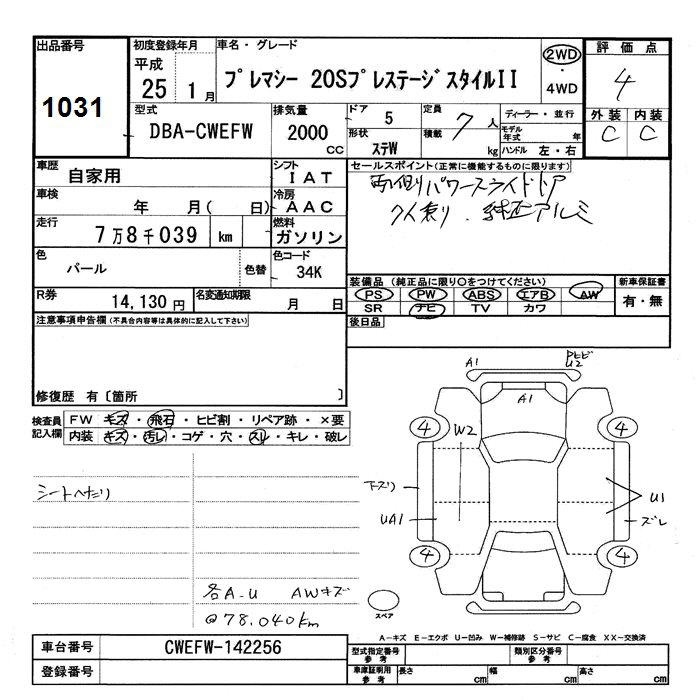 出品番号 初度登録年月 車名・グレード 評価点
1031 平成 25 1月 プレマシー 20SプレステージスタイルII 2WD・4WD 4
型式 排気量 ドア 定員 ディーラー・並行 外装 内装
DBA-CWEFW 2000 CC 5 7人 C C
形状 ステW 積載 kg モデル年式 年 ハンドル 左・右
車歴 自家用 シフト IAT
セールスポイント(正常に機能するものに限ります)
両側パワースライドドア
7人乗り . 純正アルミ
車検 年 月( 日) 冷房 AAC
走行 7万8千039 km 燃料 ガソリン
色 パール 色替 色コード 34K
装備品 (純正品に限り○をつけてください) 新車保証書
PS PW ABS エアB AW 有・無
SR ナビ TV カワ
R券 14,130円 名変通知期限 月 日
注意事項申告欄(不具合内容等は具体的に記入して下さい) 後日品
修復歴 有〔箇所 〕
検査員記入欄 FW キズ・飛石・ヒビ割・リペア跡・×要
内装 キズ・汚レ・コゲ・穴・スレ・キレ・破レ
A1 U2
A1
4 W2 4
シートヘタリ 下スリ U1
UA1 ズレ
4 4
各A-U AWキズ
@78.040km
スペア
A-キズ E-エクボ U-凹み W-補修跡 S-サビ C-腐食 XX-交換済
車台番号 CWEFW-142256 型式指定番号 参考 類別区分番号 参考
登録番号 車庫証明用 参考 長さ cm 幅 cm 高さ cm